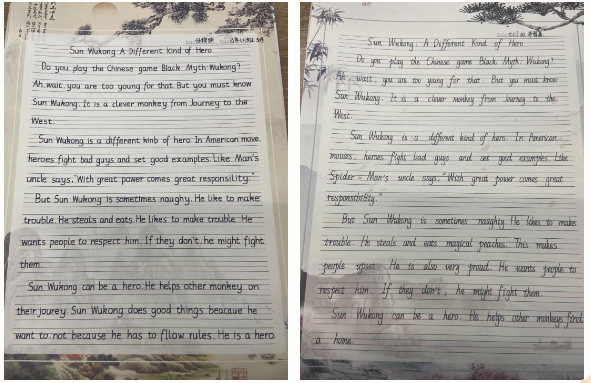 Sun Wukong A Different Kind of Hero
Do you play the Chinese game Black Myth: Wukong?
Ah, wait, you are too young for that. But you must know
Sun Wukong. It is a clever monkey from Journey to the
West.
Sun Wukong is a different kinb of hero. In American move,
heroes fight bad guys and set good examples. Like Man's
uncle says, "With great power comes great responsility."
But Sun Wukong is sometimes naughy. He like to make
trouble. He steals and eats. He likes to make trouble. He
wants people to respect him. If they don't, he might fight
them.
Sun Wukong can be a hero. He helps other monkey on
their jourey. Sun Wukong does good things beacaue he
want to not because he has to fllow rules. He is a hero.
Sun Wukong: A Different Kind of Hero
Do you play the Chinese game Black Myth: Wukong?
Ah, wait, you are too young for that. But you must know
Sun Wukong. It is a clever monkey from Journey to the
West.
Sun Wukong is a different kind of hero. In American
movies, heroes fight bad guys and set good examples. Like
Spider-Man's uncle says, "With great power comes great
responsibility."
But Sun Wukong is sometimes naughty. He likes to make
trouble. He steals and eats magical peaches. This makes
people upset. He is also very proud. He wants people to
respect him. If they don't, he might fight them.
Sun Wukong can be a hero. He helps other monkeys find
a home.